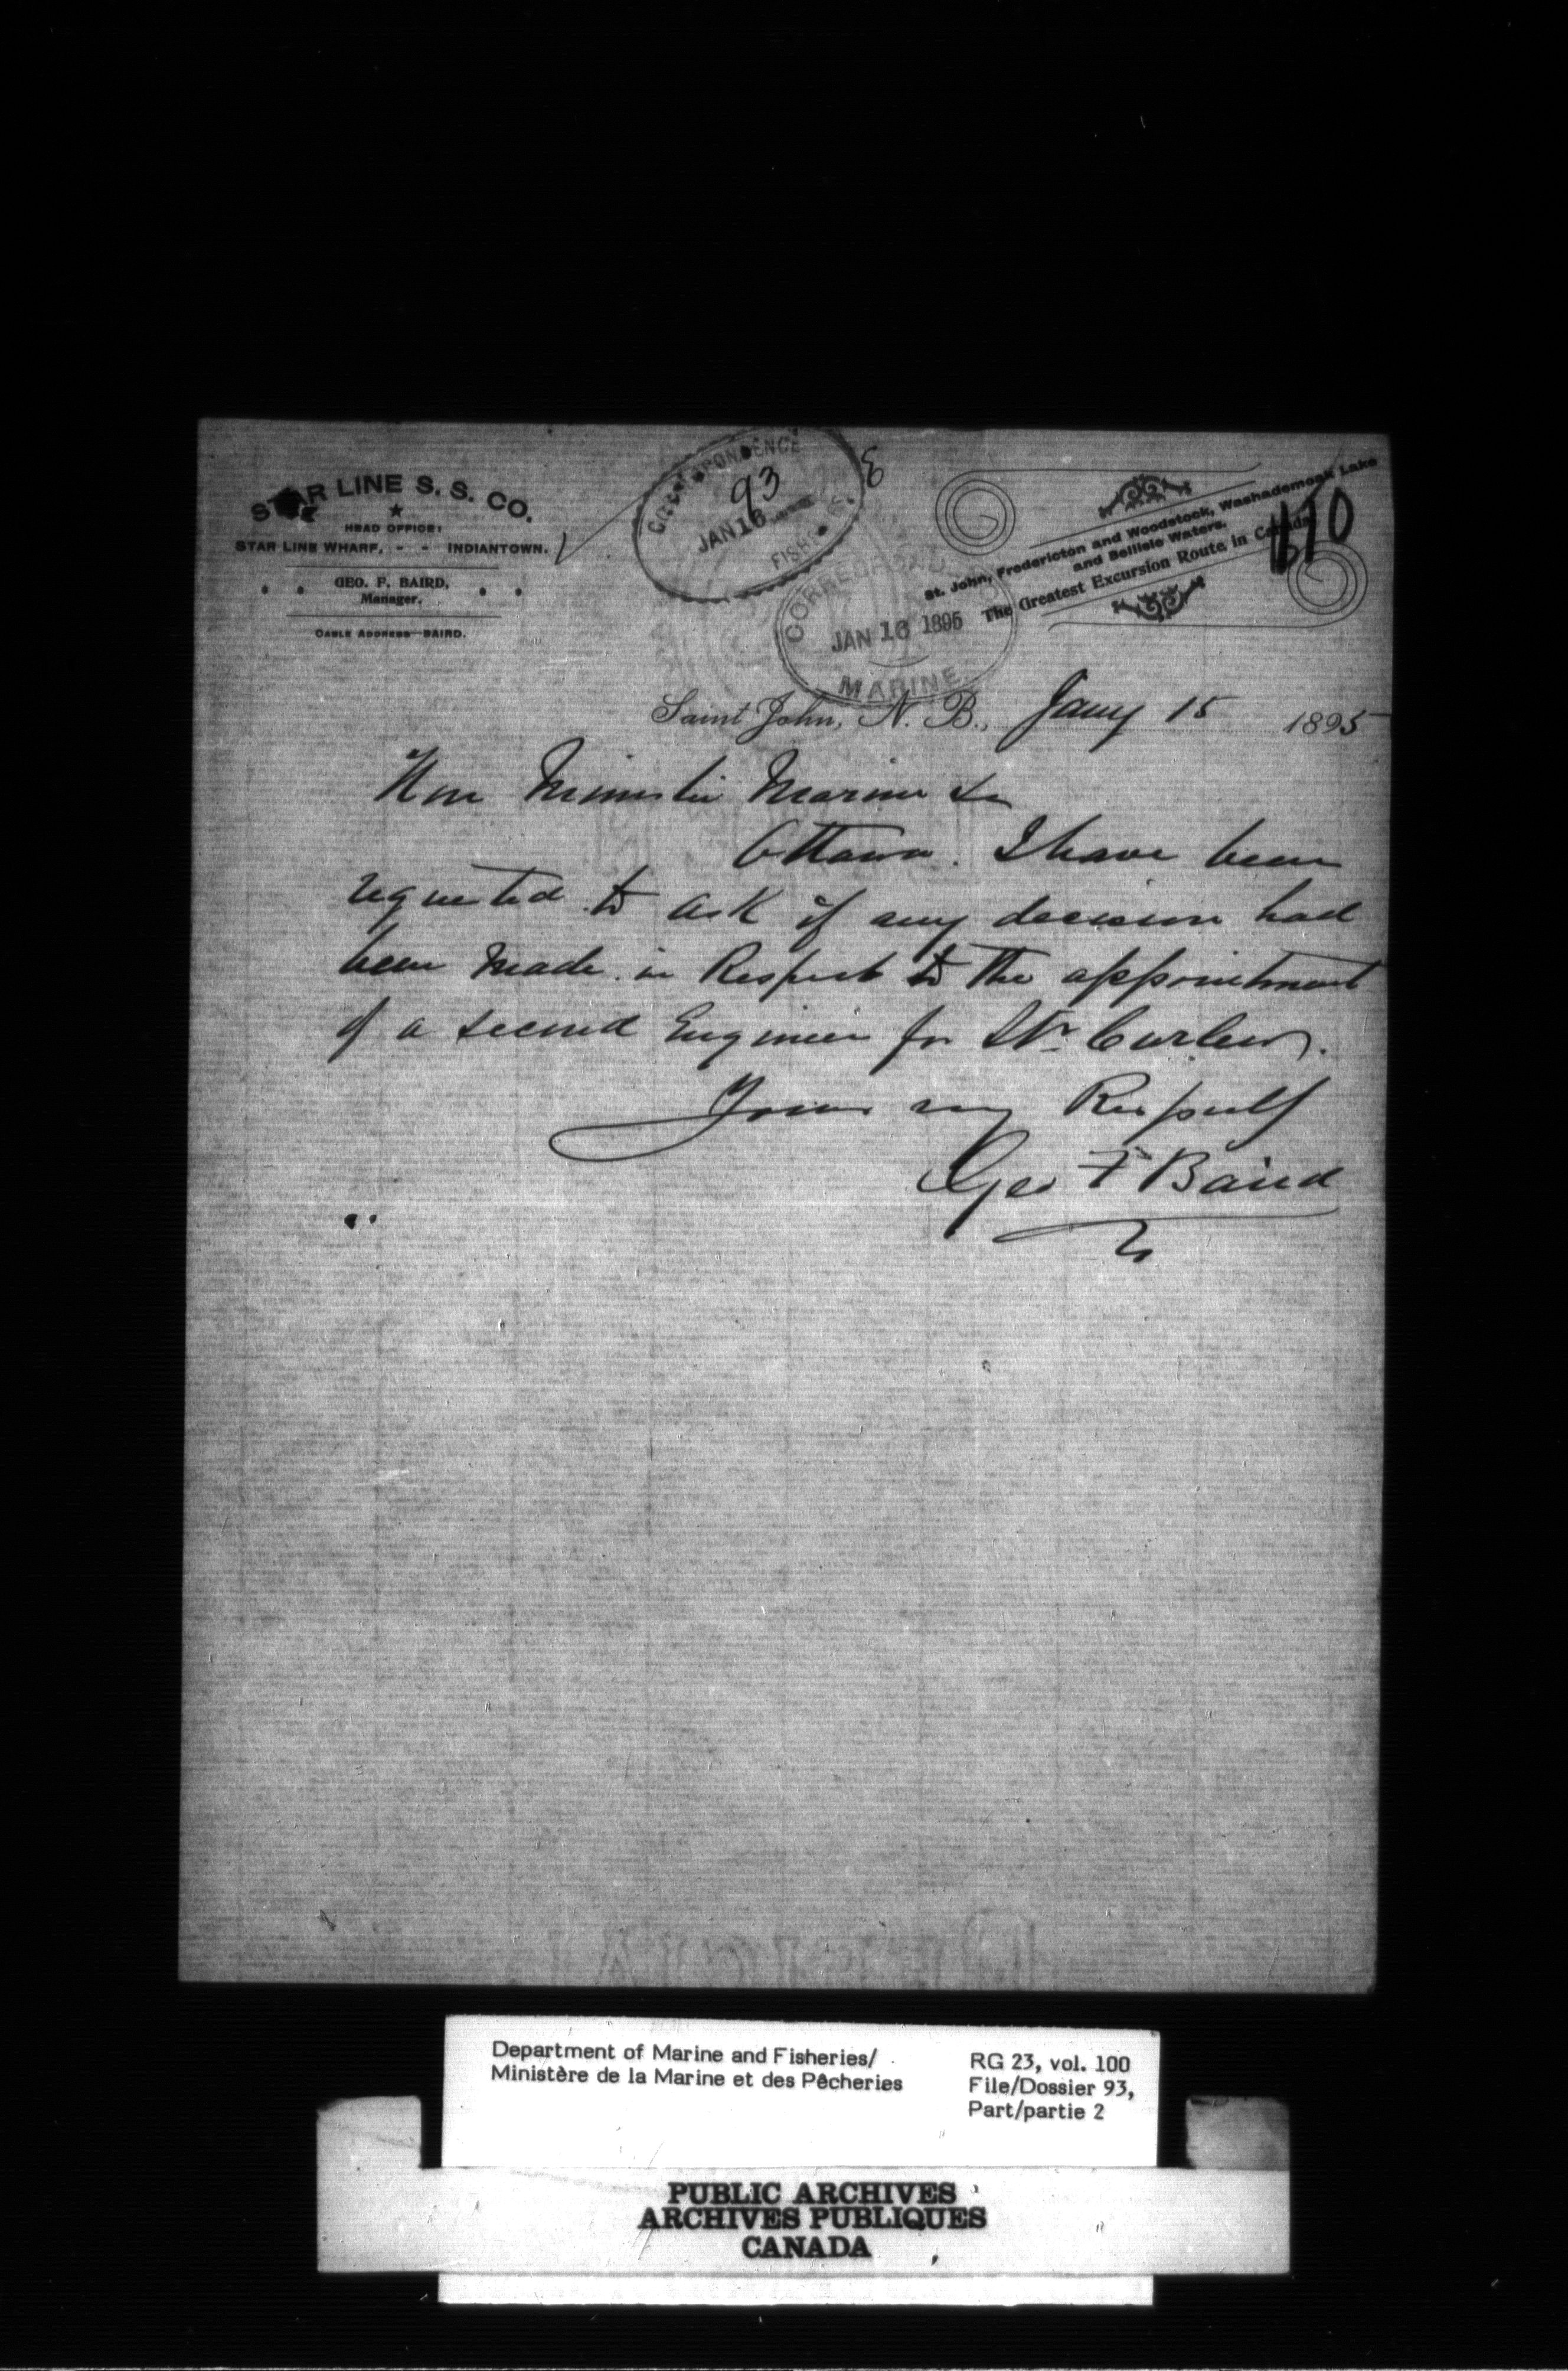 STAR LINE S. S. CO.
HEAD OFFICE:
STAR LINE WHARF, - - INDIANTOWN.
GEO. F. BAIRD,
Manager.
CABLE ADDRESS—BAIRD.
CORRESPONDENCE
93
JAN 16
FISHERIES
CORRESPONDENCE
JAN 16 1895
MARINE
St. John, Fredericton and Woodstock, Washademoak Lake
and Bellisle Waters.
The Greatest Excursion Route in Canada
Saint John, N. B., Jany 15 1895
Hon Minister Marine &c
Ottawa. I have been
requested to ask if any decision had
been made in Respect to the appointment
of a second Engineer for Str Curlew.
Yours my Respectf
Geo F Baird
Department of Marine and Fisheries/
Ministère de la Marine et des Pêcheries
RG 23, vol. 100
File/Dossier 93,
Part/partie 2
PUBLIC ARCHIVES
ARCHIVES PUBLIQUES
CANADA